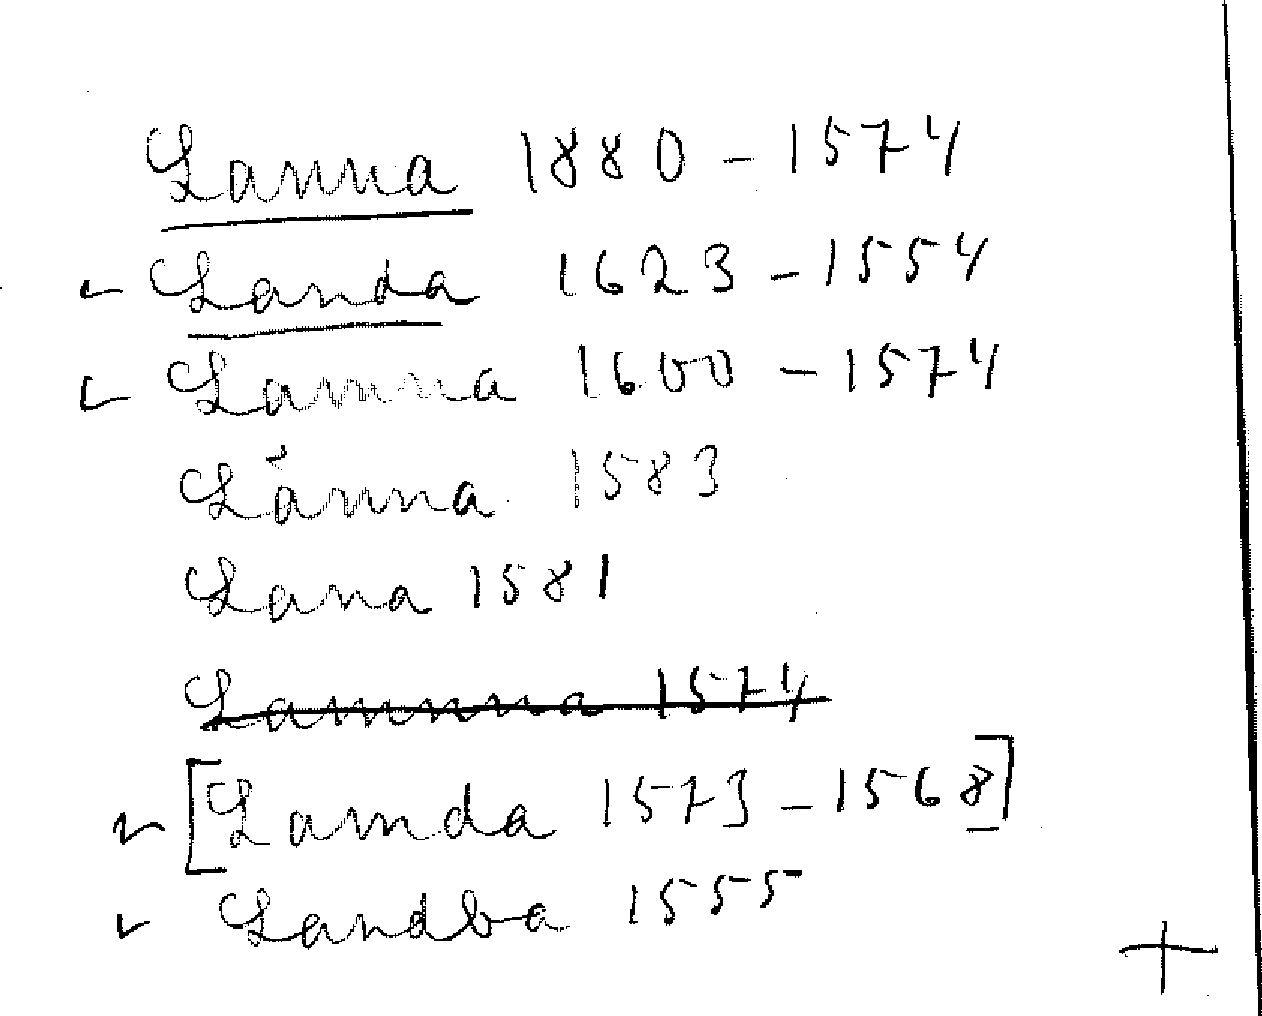 Lanna 1880 - 1574
Landa 1623 - 1554
Lamna 1600 - 1574
Länna 1583
Lana 1581
Lamnna 1574
[Lamda 1573 - 1568]
Landba 1555